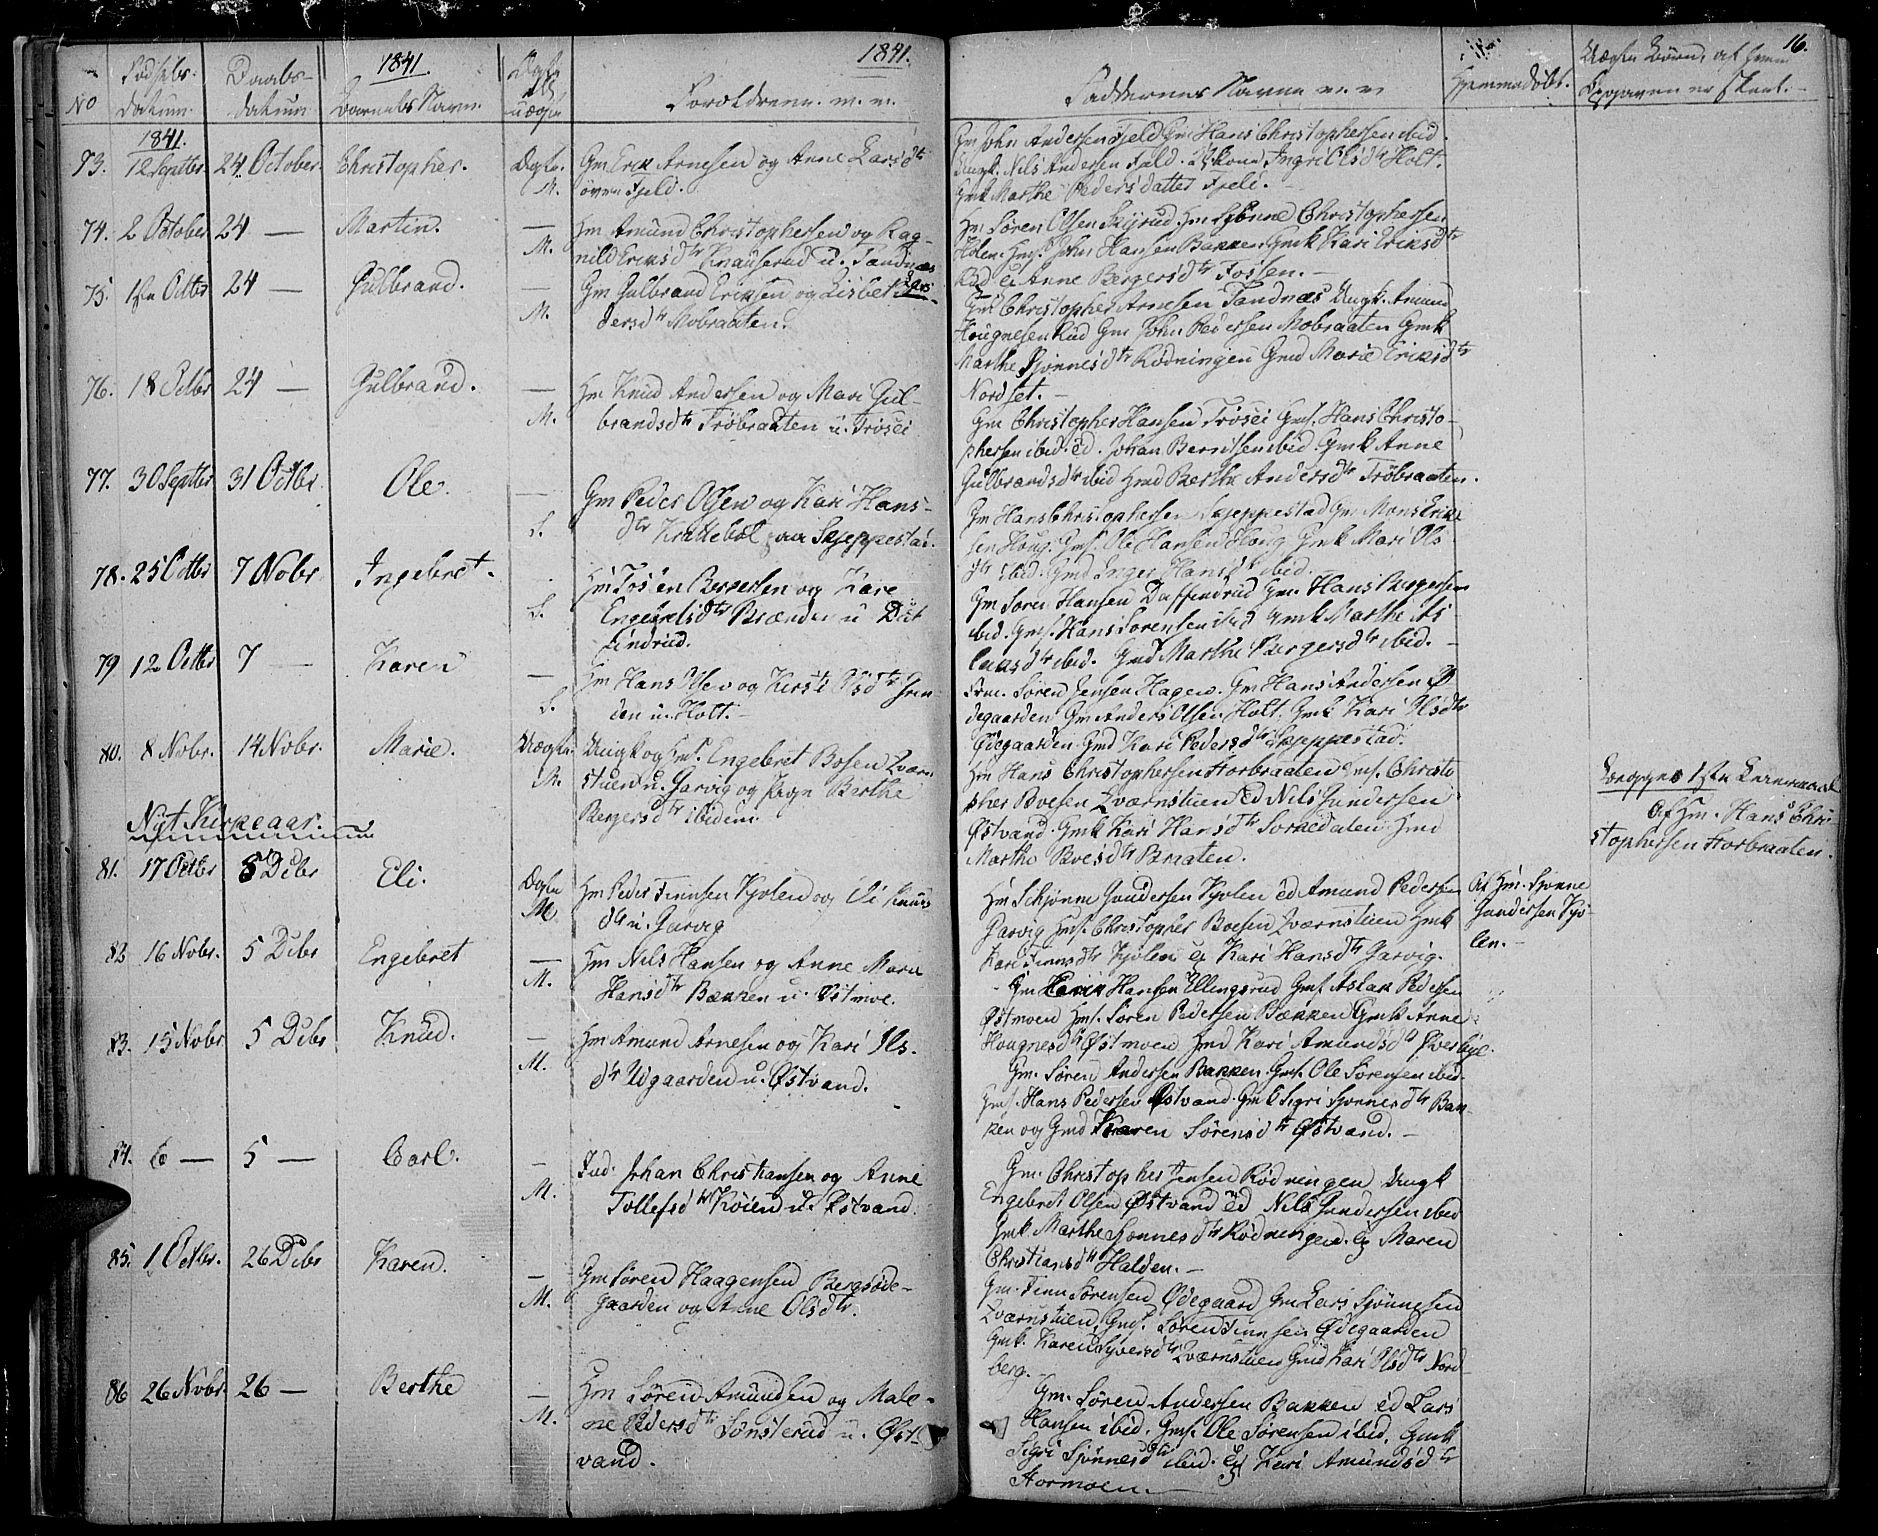 No
Fødsels-
datum.
Daabs-
datum
1841
Barnets Navn.
Ægte
uægte
1841.
Forældrene. m. v.
Faddernes Navne m. v.
Hjemmedøbt.
16.
Uægte Børn, af hvem
Opgaven er skeet.
1841.
73. 12 Septbr 24 October. Christopher. Ægte. M.
Gm Erik Arnesen og Anne Larsdtr
øvre Fjeld.
Gm John Andersen Fjeld Gm Hans Christophersen ibid.
Ungk. Nils Andersen Fjeld. Ingri Olsdtr Holt.
Gmk Marthe Pedersdatter Fjeld.
74. 2 October 24 — Martin. — M.
Hm Amund Christophersen og Rag-
nild Eriksdtr Knauserud u. Tandnæs
Hm Søren Olsen Skjrud. Hm Sjønne Christophersen
Holen. Gmf. John Hansen Bakken Gmk Kari Eriksdtr
Rud Anne Bergersdtr Fossen. —
75. 1ste Octbr 24 — Gulbrand. — M.
Gm Gulbrand Eriksen og Lisbet
dersdtr Mobraaten.
Gm Christopher Arnesen Tandnæs Ungk. Amund
Hougnesen Rud Gm John Pedersen Mobraaten Gmk
Marthe Sjønnesdtr Rødningen Gmd Marie Eriksdtr
Nordset. —
76. 18 Octbr 24 — Gulbrand. — M.
Hm Knud Andersen og Mari Gul-
brandsdtr Frøbraaten u. Frøsei
Gm Christopher Hansen Frøsei Gmf. Hans Christo-
phersen ibid. ed. Johan Berntsen ibid. Gmk Anne
Gulbrandsdtr ibid Hmd Berthe Andersdtr Frøbraaten.
77. 30 Septbr 31 Octbr. Ole. — S.
Gm Peder Olsen og Kari Hans-
dtr Krattebøl paa Skjeppestad.
Gm Hans Christophersen Skjeppestad Gm Mons Erik-
sen Houg. Gmf. Ole Hansen Houg Gmk Mari Ols
dtr ibid. Gmd Inger Hansdtr ibid.
78. 25 Octbr 7 Nobr Ingebret. S.
Hm Tosten Bergersen og Kare
Engebretsdtr Brænden u Duf
findrud.
Gm Søren Hansen Duffindrud Gm. Hans Bergersen
ibid. Gmf. Hans Sorensen ibid Gmk Marthe As
laksdtr ibid. Gmd Marthe Bergersdtr ibid. —
79 12 Octbr 7 — Karen — S.
Hm Hans Olsen og Kersti Olsdtr Gran-
den u. Holt. —
Søren Jensen Hagen. Gm Hans Andersen Ø
degaarden Gm Anders Olsen Holt. Gmk Kari Olsdtr
Ødegaarden Gmd Kari Pedersdtr Skjeppestad.
80. 8 Nobr. 14 Nobr. Marie. Uægte. M.
Ungk og Gmf. Engebret Bosen Qværn-
stuen u. Garvig og Pige Berthe
Bergersdtr ibidem
Hm Hans Christophersen Horbraaten Gmf. Christo
pher Boesen Qværnstuen Ed Nils Gundersen
Østvand. Gmk Kari Hansdtr Sorkedalen Hmd
Marthe Boesdtr Braaten.
1ste
Af Hm. Hans Chri-
stophersen Horbraaten.
Nyt Kirkeaar.
81. 17 Octbr 5 Dcbr Eli. Ægte M.
Hm Peder Finnsen Kjølen og Eli Knuds
dtr u. Garvig
Hm Schjønne Gundersen Kjølen ed Amund Pedersen
Garvig Gmf. Christopher Boesen Qværnstuen Gmk
Kari Finnsdtr Kjølen Kari Hansdtr Garvig.
Af Hm. Sjønne
Gundersen Kjø-
len. —
82 16 Nobr. 5 Dcbr Engebret — M.
Hm Nils Hansen og Anne Marie
Hansdtr Bækken u. Østmoe.
Gm Hansen Ellingsrud Gmf Aslak Pedersen
Østmoen Hmf. Søren Pedersen Bækken Gmk Anne
Hougnesdtr Østmoen Hmd Kari Amundsdtr Øverbye.
83. 15 Nobr 5 Dcbr Knud. — M.
Hm Amund Arnesen og Kari Ols-
dtr Udgaarden u. Østvand.
Gm. Søren Andersen Bakken. Gmf. Ole Sørensen ibid.
Gmf. Hans Pedersen Østvand. Gmk Sigri Sjonnesdtr Bak-
ken og Gmd Karen Sørensdtr Østvand. —
84. 6 — 5 — Carl. — M.
Ind. Johan Christiansen og Anne
Tollefsdtr Køien u. Østvand.
Gm. Christopher Jensen Rødningen Ungk
Engebret Olsen Østvand Ed Nils Gundersen ibid
Gmk Marthe Sjonnesdtr Rødningen. Maren
Christiansdtr Halden. —
85. 1 Octbr. 26 Dcbr Karen. — M.
Gm Søren Haagensen Bergsøde-
gaarden og Anne Olsdtr.
Gm. Finn Sørensen Ødegaard Gm Lars Sjønnesen
Qværnstuen, Gmf. Søren Finnsen Ødegaarden
Gmk. Karen Syversdtr Qværnstuen Gmd Kari Olsdtr Nord
berg. —
86 26 Nobr. 26 — Berthe — M.
Hm Søren Amundsen og Male-
ne Pedersdtr Sønsterud u. Øst-
vand.
Gm. Søren Andersen Bakken ed Lars
Hansen ibid. Gmf. Ole Sørensen ibid, Gmk
Sigri Sjønnesdtr ibid. Kari Amundsdtr
Stormoen. —